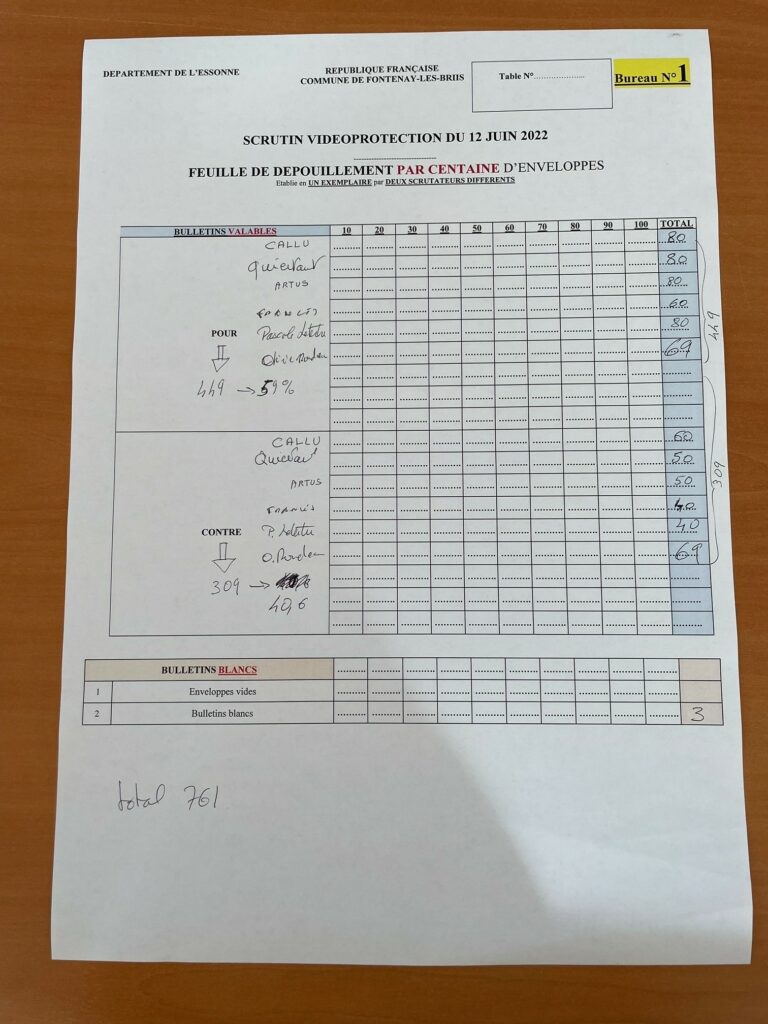 DEPARTEMENT DE L'ESSONNE
REPUBLIQUE FRANÇAISE
COMMUNE DE FONTENAY-LES-BRIIS
Table N°....................
Bureau N°1
SCRUTIN VIDEOPROTECTION DU 12 JUIN 2022
FEUILLE DE DEPOUILLEMENT PAR CENTAINE D'ENVELOPPES
Etablie en UN EXEMPLAIRE par DEUX SCRUTATEURS DIFFERENTS
BULLETINS VALABLES 10 20 30 40 50 60 70 80 90 100 TOTAL
CALLU 80
Quievant 80
ARTUS 80
FRANCIS 60
POUR Pascale 80
69
449 → 59%
449
CALLU 60
Quievant 50
ARTUS 50
FRANCIS 40
CONTRE P. 40
O. 69
309 →
40,6
309
BULLETINS BLANCS
1 Enveloppes vides
2 Bulletins blancs 3
total 761